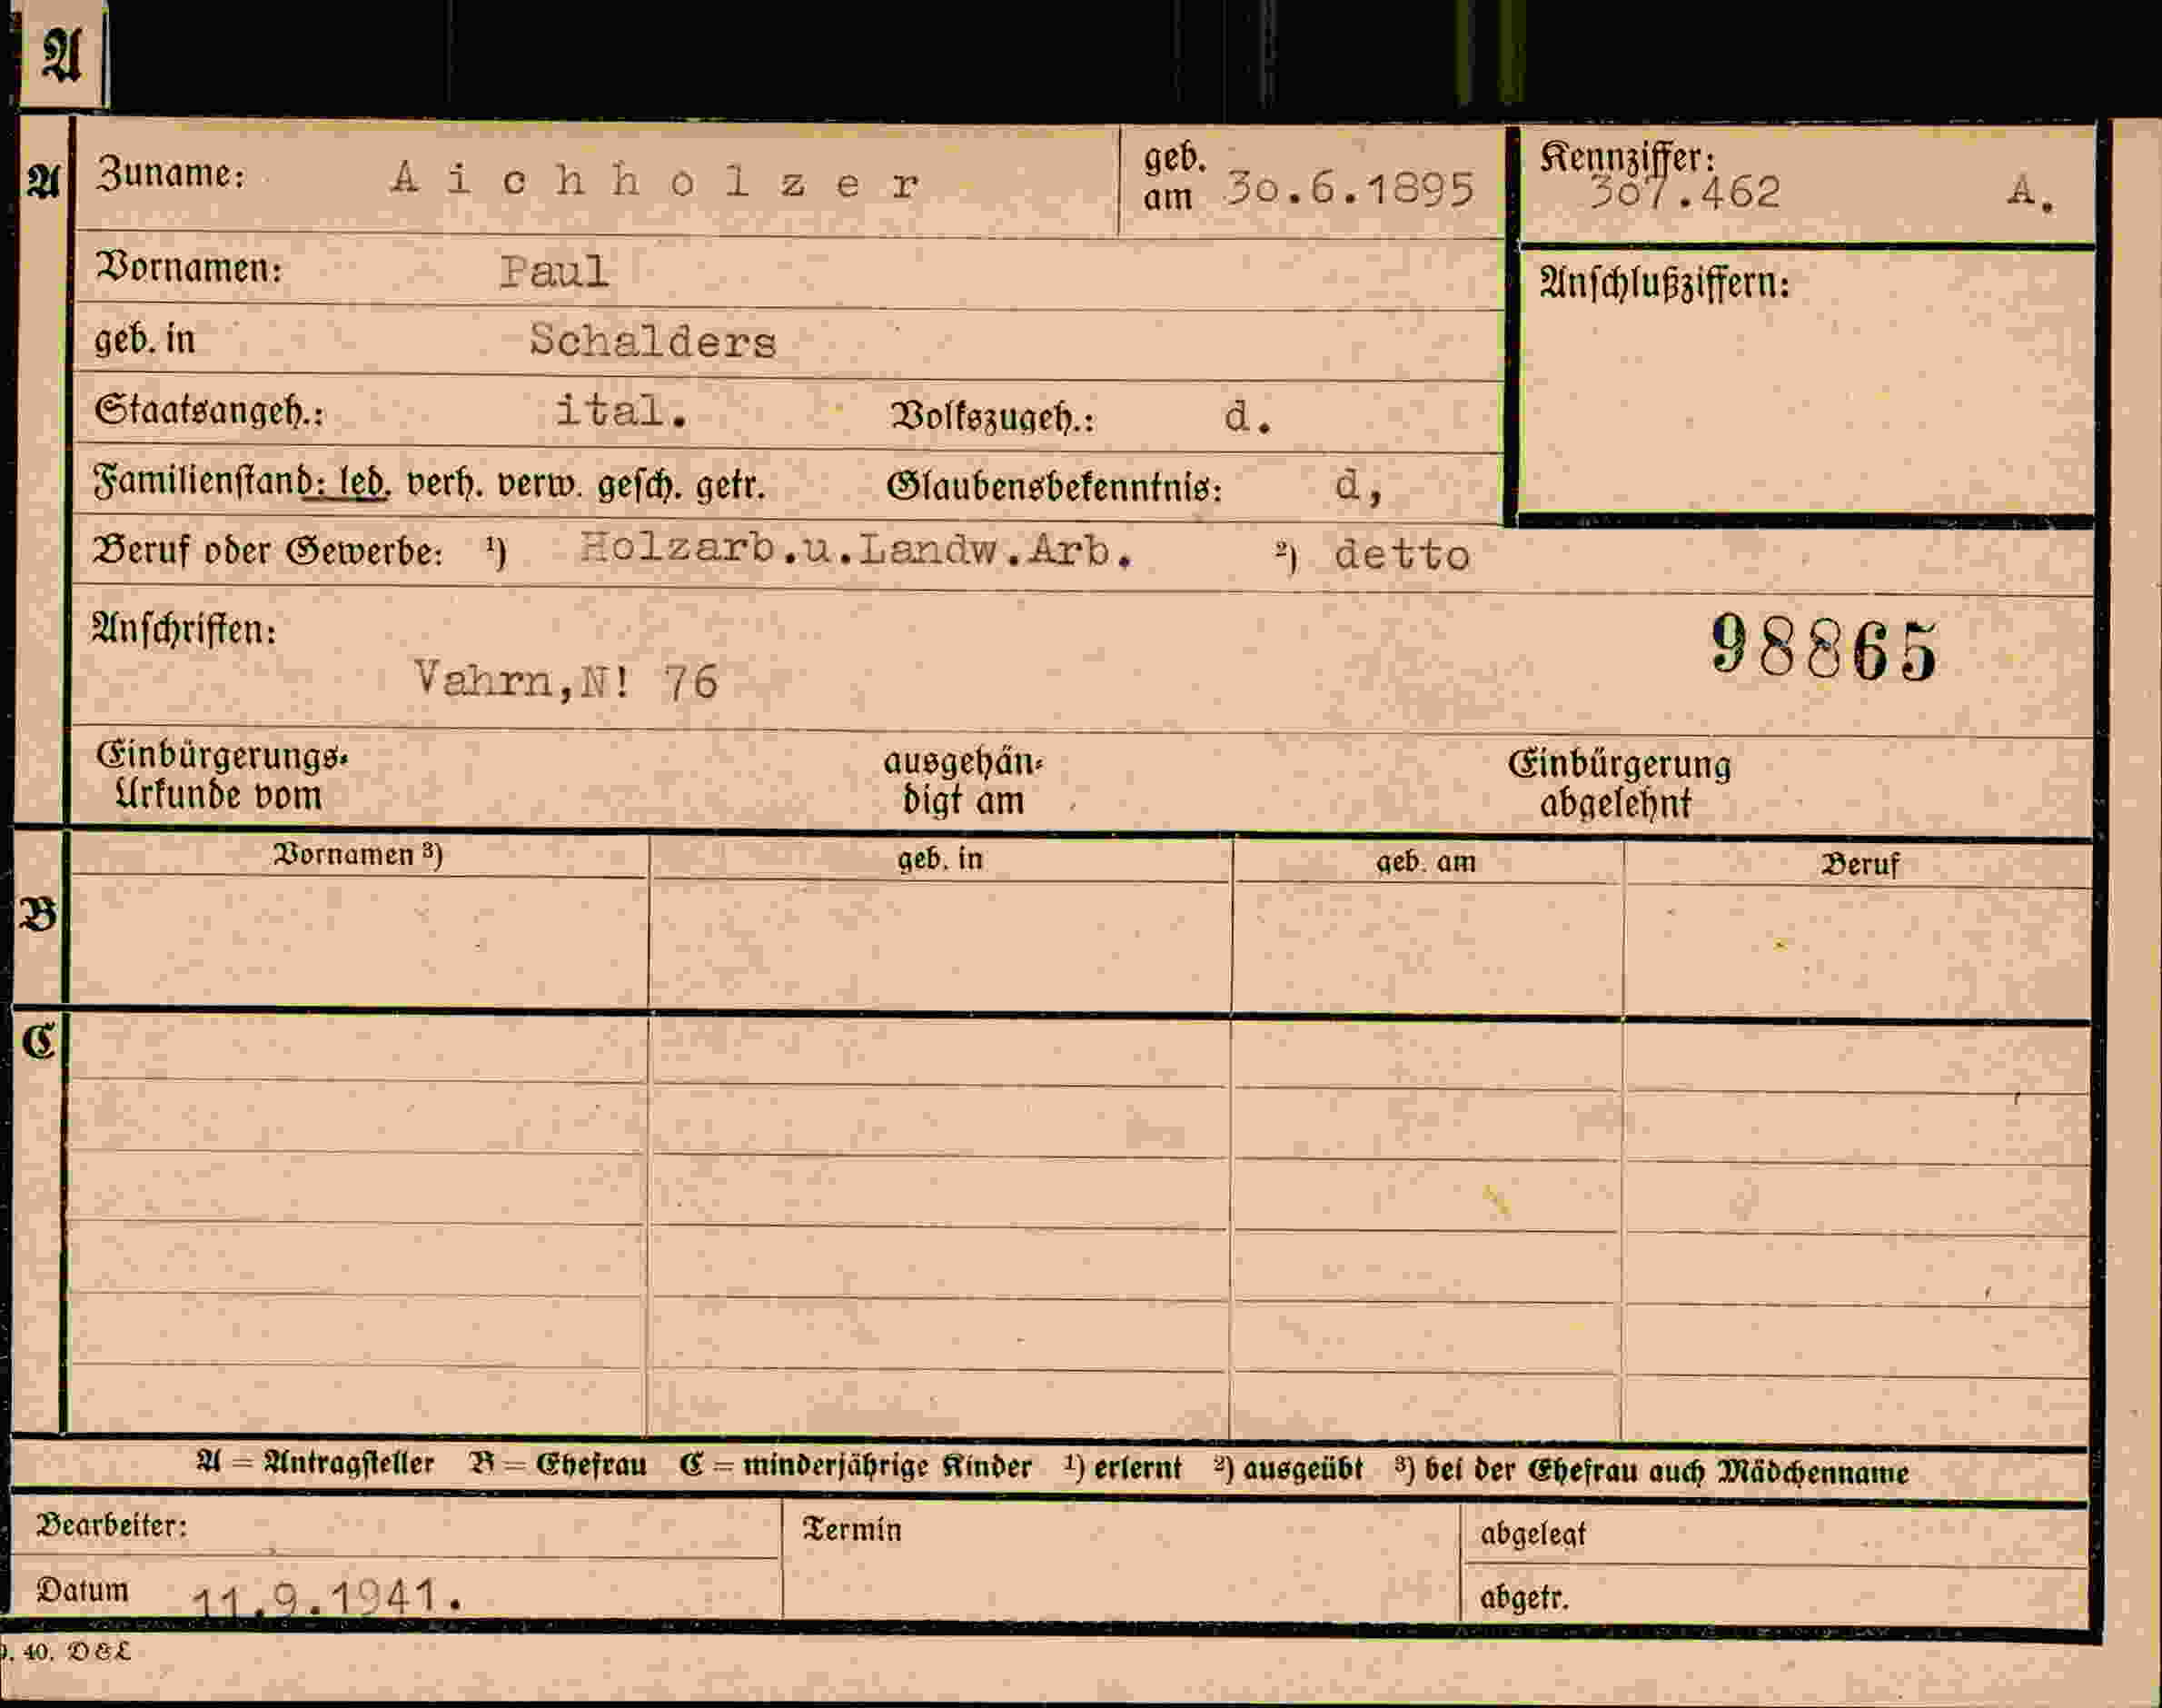 A
A Zuname: Aichholzer geb. am 30.6.1895 Kennziffer: 307.462 A.
Vornamen: Paul
Anschlußziffern:
geb. in Schalders
Staatsangeh.: ital. Volkszugeh.: d.
Familienstand: led. verh. verw. gesch. getr. Glaubensbekenntnis: d,
Beruf oder Gewerbe: ¹) Holzarb.u.Landw.Arb. ²) detto
Anschriften:
98865
Vahrn,N! 76
Einbürgerungs- ausgehän- Einbürgerung
Urkunde vom digt am abgelehnt
Vornamen ³) geb. in geb. am Beruf
B
C
A = Antragsteller B = Ehefrau C = minderjährige Kinder ¹) erlernt ²) ausgeübt ³) bei der Ehefrau auch Mädchenname
Bearbeiter: Termin abgelegt
Datum 11.9.1941. abgetr.
. 40. DEL